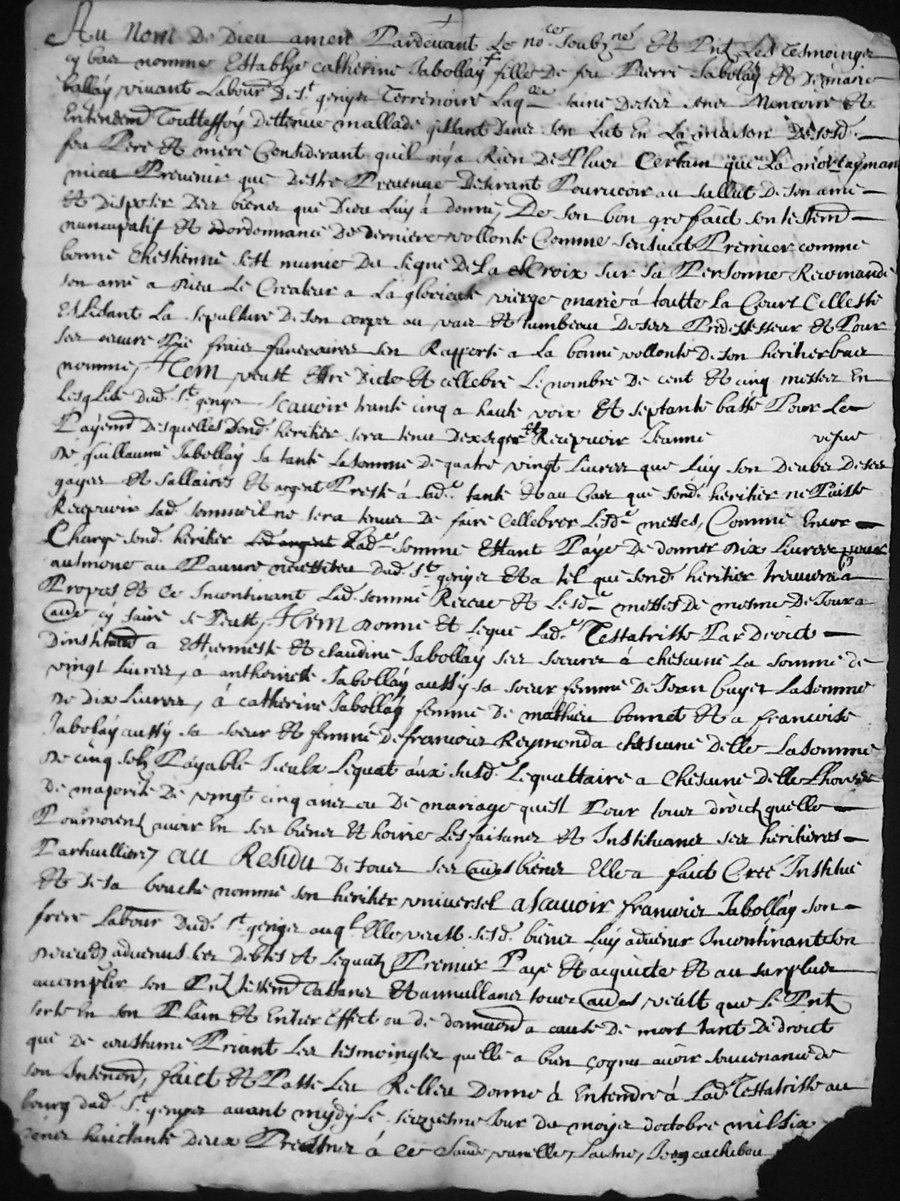 Au Nom De Dieu amen Pardevant Le no.re soubz.né Et Pnt Les Tesmoingz
cy bas nommé Establye Catherine Jabollay fille De feu Pierre Jabolay Et De marie
ballay vivant Labour De St genyez Terrenoire Laq.lle saine De ses sens Memoire Et
Entendem.t Touttesfoy Dettenue mallade gissant Dans son Lict En La maison De sesd.
feu Pere Et mere Considerant quil ny a Rien De Plus Certain que La mort aymant
mieux Prevenir que Destre Prevenue Desirant Pourveoir au sallut De son ame
Et Disposer Des biens que Dieu Luy a donné, De son bon gre faict son testem.t
nuncupatif Et ordonnance De Derniere vollonté Comme sensuict Premier comme
bonne Chrestienne sest munie Du signe De La Croix sur sa Personne Recomandé
son ame a Dieu Le Createur a La glorieuse vierge marie a toutte La Court Celleste
Eslisant La sepulture De son corps au vas Et tumbeau De ses Predessesseur Et Pour
ses œuvre Pie frais funeraires sen Rapporte a La bonne vollonté De son heritier bas
nommé, Item veult Estre Dicte Et cellebré Le nombre De cent Et cinq messes En
Lesglise Dud. St genyez scavoir trante cinq a haute voix Et septante basse Pour Le
Payem.t Desquelles sond. heritier sera tenu Dexiger Et Recepvoir Jeanne vefve
De guillaume Jabollay sa tante La somme De quatre vingt Livres que Luy son Deubz De ses
gages Et sallaires Et argent Presté à Lad. tante Et au Cas que sond. heritier ne Puisse
Recepvoir Lad. somme il ne sera tenu De faire Cellebrer Lesd. messes, Comme Encor
Charge sond. heritier Lad. somme Estant Payé De donner Dix Livres
aulmone au Pauvre Dud. St genyez Et a tel que sond. heritier trouvera a
Propos Et Ce Incontinant Lad. somme Receue Et Lesd. messes De mesme De Jour a
aude cy faire se Peult, Item Donne Et Legue Lad. Testatrisse Par Droict
Dinstitu.on a Estiennette Et claudine Jabollay ses soeurs à chescune La somme de
vingt Livres, à anthoinette Jabollay aussy sa soeur femme De Jean buyet La somme
De Dix Livres, à catherine Jabollay femme De mathieu bonnet Et a francoise
Jabolay aussy sa soeur Et femme De francois Reymond a chescune Delle La somme
De cinq solz Payable Iceulx Lequat aux susd. Lequattaire a Chescune Delle Lhors
De majorité De vingt cinq ans ou De mariage quest Pour tous droict quelle
Pourroient avoir En ses biens Et hoirie Les faisant Et Instituant ses heritieres
Particullieres, au Residu De tous ses biens Elle a faict Créé Institué
Et De sa bouche nommé son heritier universel ascavoir francois Jabollay son
frere Labour Dud. St genyez auq.l Elle veult sesd. biens Luy advenir Incontinant son
Deces advenu ses Debtes Et Lequatz Premier Payé Et acquicté Et au surplus
accomplir son Pnt testem.t Cassant Et annullant tous veult que Le Pnt
sorte En son Plain Et Entier Effect ou de donna.on a cause De mort tant De droict
que De coustume Priant Les tesmoingtz quelle a bien cognu avoir souvenance de
son Intention, faict Et Passe Leu Relleu Donné à Entendre à Lad. Testatrisse au
bourg dud. St genyez avant mydy Le seziesme Jour Du moys doctobre mil six
cens huictante Deux Presens à Ce